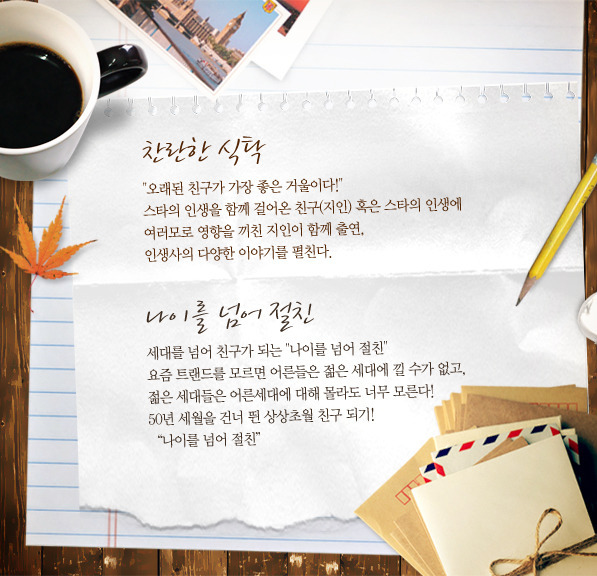 찬란한 식탁
"오래된 친구가 가장 좋은 거울이다!"
스타의 인생을 함께 걸어온 친구(지인) 혹은 스타의 인생에
여러모로 영향을 끼친 지인이 함께 출연,
인생사의 다양한 이야기를 펼친다.
나이를 넘어 절친
세대를 넘어 친구가 되는 "나이를 넘어 절친"
요즘 트랜드를 모르면 어른들은 젊은 세대에 낄 수가 없고,
젊은 세대들은 어른세대에 대해 몰라도 너무 모른다!
50년 세월을 건너 뛴 상상초월 친구 되기!
“나이를 넘어 절친”